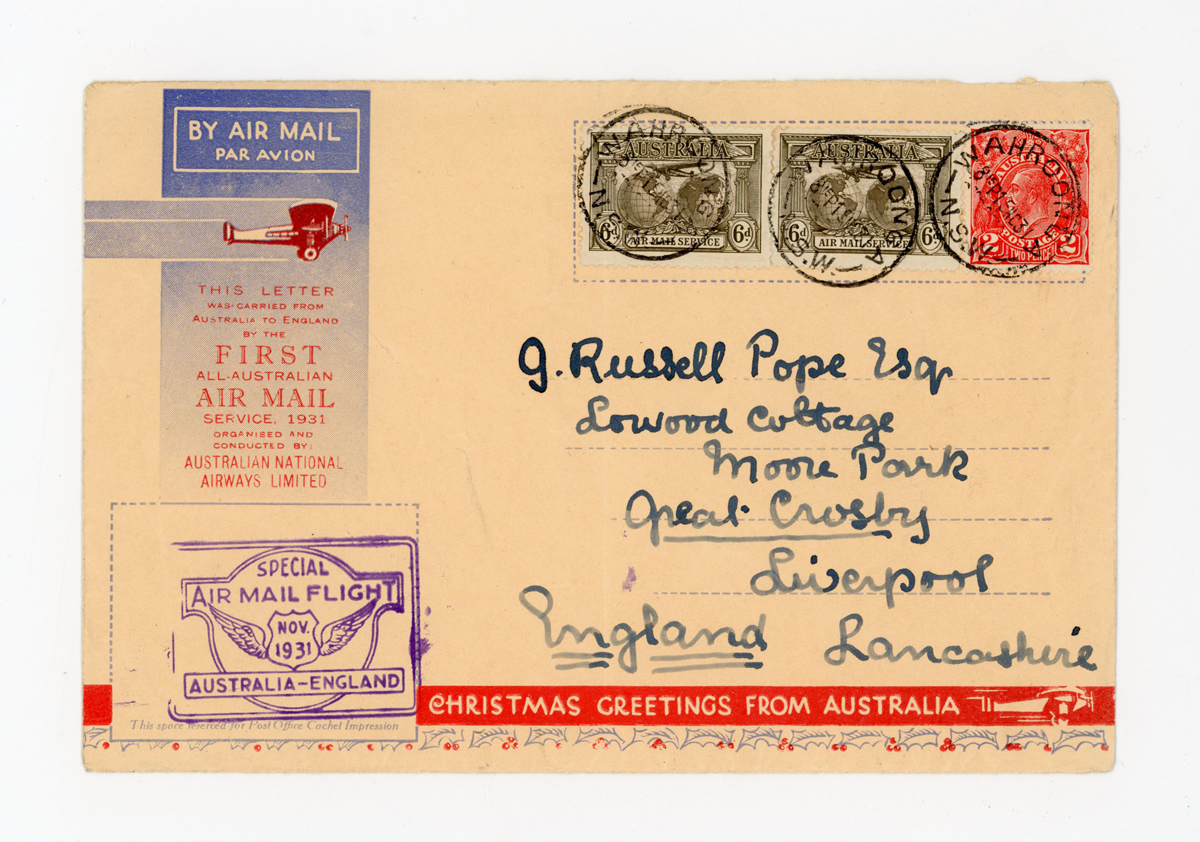 BY AIR MAIL
PAR AVION
THIS LETTER
WAS CARRIED FROM
AUSTRALIA TO ENGLAND
BY THE
FIRST
ALL-AUSTRALIAN
AIR MAIL
SERVICE, 1931
ORGANISED AND
CONDUCTED BY:
AUSTRALIAN NATIONAL
AIRWAYS LIMITED
AUSTRALIA
6d 6d
AIR MAIL SERVICE
WAHROONGA
N.S.W
AUSTRALIA
6d 6d
AIR MAIL SERVICE
WAHROONGA
N.S.W
2 2
POSTAGE
TWO PENCE
WAHROONGA
N.S.W
J. Russell Pope Esq
Lowood Cottage
Moore Park
Great Crosby
Liverpool
England Lancashire
SPECIAL
AIR MAIL FLIGHT
NOV.
1931
AUSTRALIA-ENGLAND
This space reserved for Post Office Cachet Impression
CHRISTMAS GREETINGS FROM AUSTRALIA